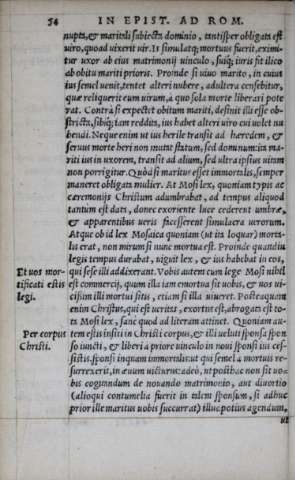 54 IN EPIST. AD ROM.
nupta, & maritali subiecta dominio, tantisper obligata est
uiro, quoad uixerit uir. Is simulatq; mortuus fuerit, eximi-
tur uxor ab eius matrimonij uinculo, suiq; iuris fit ilico
ab obitu mariti prioris. Proinde si uiuo marito, in cuius
ius semel uenit, tentet alteri nubere, adultera censebitur,
quæ reliquerit eum uirum, a quo sola morte liberari pote
rat. Contra si expectet obitum mariti, desinit illi esse ob-
stricta, sibiq; iam reddita, ius habet alteri uiro cui uolet nu
bendi. Neque enim ut ius herile transit ad hæredem, &
seruus morte heri non mutat statum, sed dominum: ita ma-
riti ius in uxorem, transit ad alium, sed ultra ipsius uitam
non porrigitur. Quòd si maritus esset immortalis, semper
maneret obligata mulier. At Mosi lex, quoniam typis ac
cæremonijs Christum adumbrabat, ad tempus aliquod
tantum est data, donec exoriente luce cederent umbræ,
& apparentibus ueris facesserent simulacra uerorum.
Atque ob id lex Mosaica quoniam (ut ita loquar) morta-
lis erat, non mirum si nunc mortua est. Proinde quandiu
legis tempus durabat, uiguit lex, & ius habebat in eos,
Et uos mor-
tificati estis
legi.
qui sese illi addixerant. Vobis autem cum lege Mosi nihil
est commercij, quum illa iam emortua sit uobis, & uos ui-
cissim illi mortui sitis, etiam si illa uiueret. Posteaquam
enim Christus, qui est ueritas, exortus est, abrogata est to-
ta Mosi lex, sanè quod ad literam attinet. Quoniam au-
Per corpus
Christi.
tem estis insiti in Christi corpus, & illi ueluti sponsa spon
so iuncti, & liberi a priore uinculo in noui sponsi ius ces-
sistis. sponsi inquam immortalis: ut qui semel a mortuis re-
surrexerit, in æuum uicturus: adeò, ut posthac non sit uo-
bis cogitandum de nouando matrimonio, aut diuortio
(alioqui contumelia fuerit in talem sponsum, si adhuc
prior ille maritus uobis succurrat) illuc potius agendum,
ut